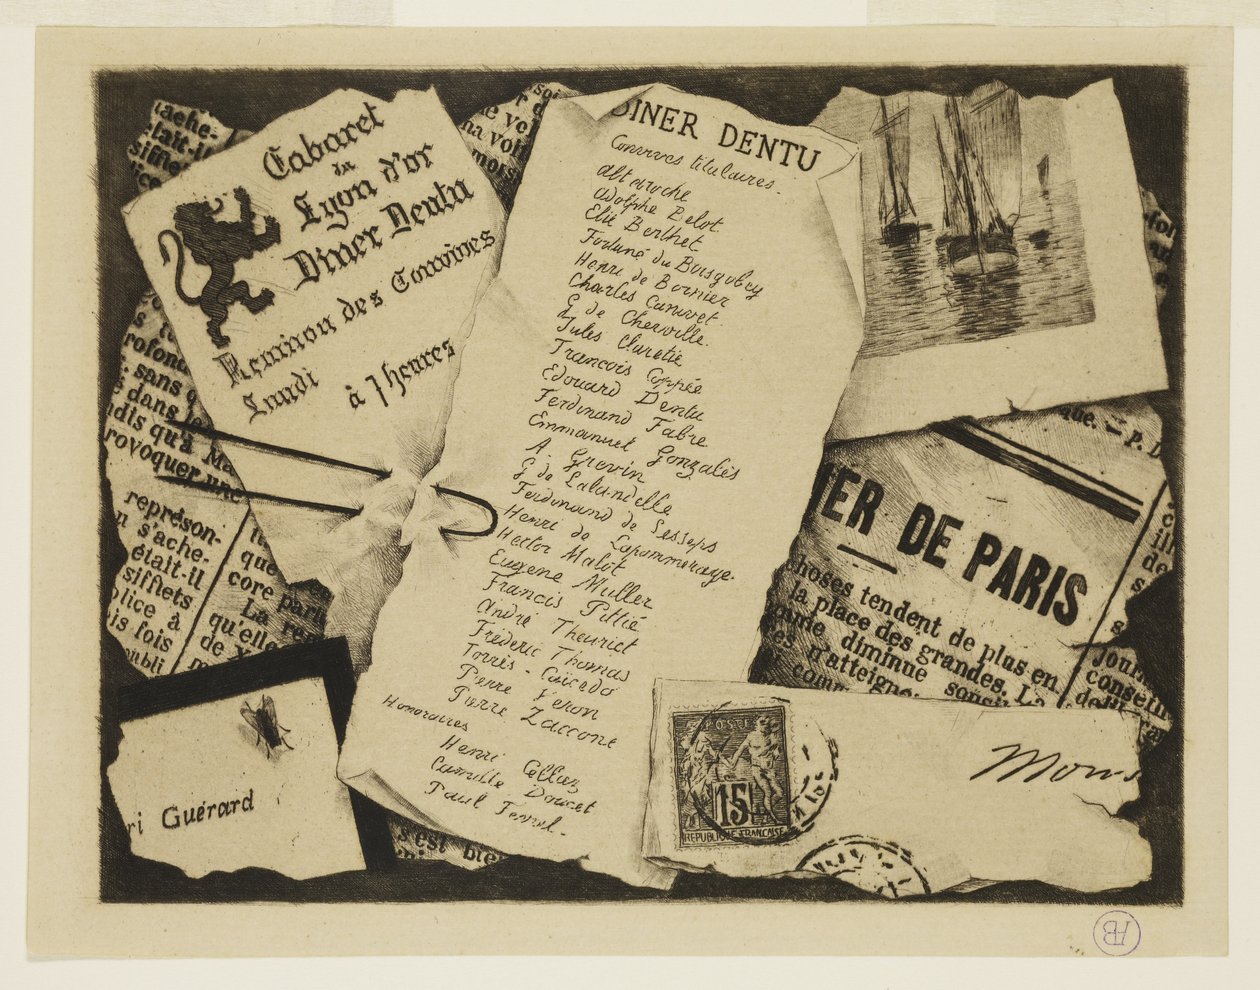 Cabaret
du
Lyon d'or
Diner Dentu
Reunion des Convives
Lundi
à 7 heures
DINER DENTU
Convives titulaires.
Altaroche
Adolphe Belot
Elie Berthet
Fortuné du Boisgobey
Henri de Bornier
Charles Canivet
G de Cherville.
Jules Claretie
François Coppée
Edouard Dentu
Ferdinand Fabre
Emmanuel Gonzalès
A. Grevin
G de Lalandelle
Ferdinand de Lesseps
Henri de Lapommeraye.
Hector Malot
Eugene Muller
Francis Pittié
André Theuriet
Fréderic Thomas
Torrès-Caïcedo
Pierre Véron
Pierre Zaccone
Honoraires
Henri Celliez
Camille Doucet
Paul Feval.
tache-
était-il
sifflets
lice
soi
r d
e vo
na voi
mots
rofond
sans
dans le
dis qu'à Ma
rovoquer une
représon-
s'ache-
était-il
sifflets
lice à
is fois
publi
que
core par
La res
qu'elle
de
ri Guérard
s'est bie
que. — P. D
IER DE PARIS
choses tendent de plus en
la place des grandes. L
diminue
n'atteigne
com
Journ
conseil
POSTE
15
REPUBLIQUE FRANÇAISE
Mons
AB